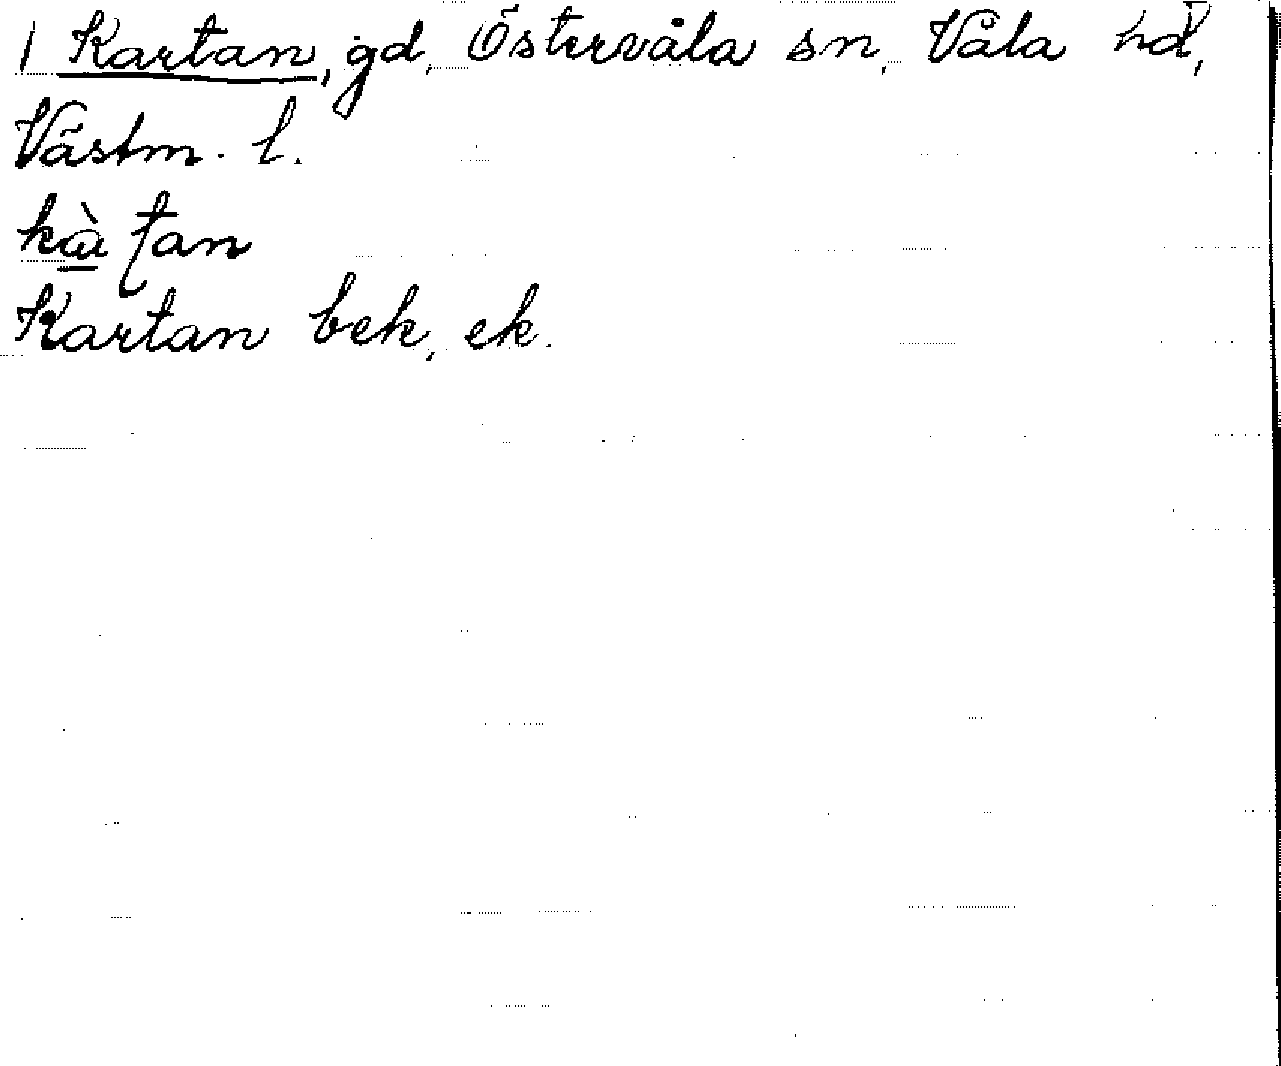 1 Kartan, gd, Östervåla sn, Våla hd,
Västm. l.
kàʈan
Kartan bek, ek.